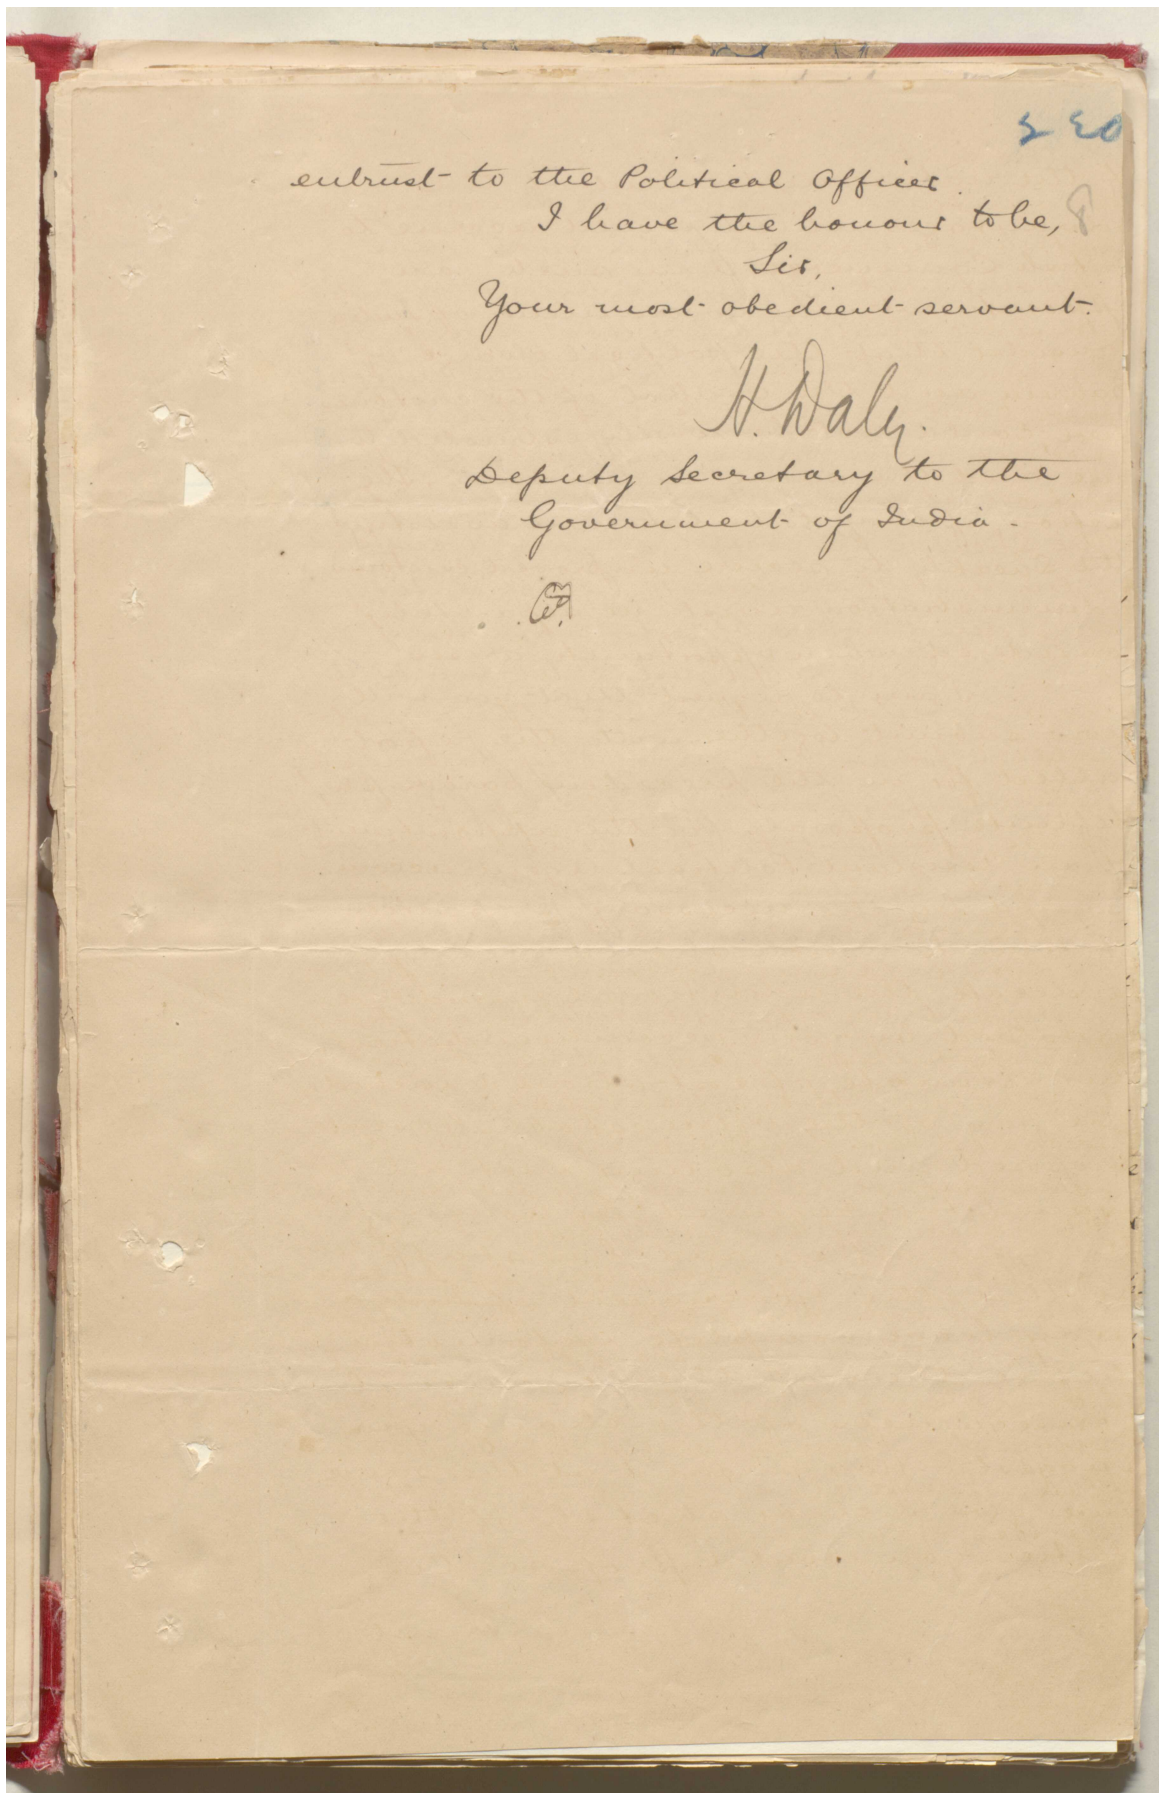 entrust to the Political Officer.
I have the honour to be,
8
Sir,
Your most obedient servant.
H. Daly.
Deputy Secretary to the
Government of India.